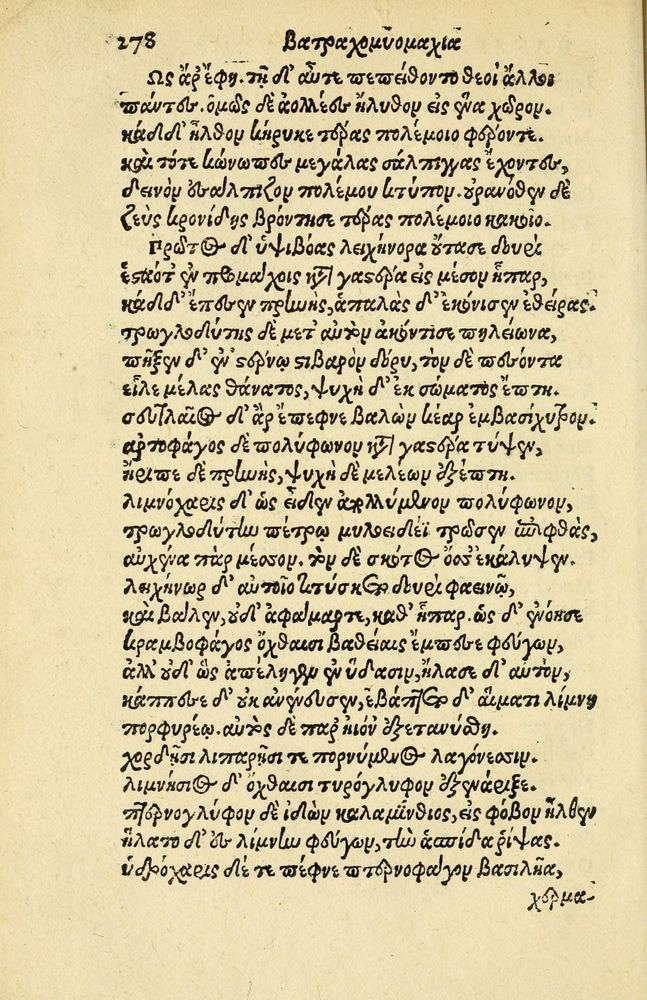 278 Βατραχομυομαχία
Ὣς ἄρ ἔφη. τῇ δ' αὖτε πεπείθοντο θεοὶ ἄλλοι
πάντες. ὁμῶς δὲ ἀολλέες ἤλυθον εἰς ἕνα χῶρον.
κάδ δ' ἦλθον κήρυκε τέρας πολέμοιο φέροντε.
καὶ τότε κώνωπες μεγάλας σάλπιγγας ἔχοντες,
δεινὸν ἐσάλπιζον πολέμου κτύπον. οὐρανόθεν δὲ
ζεὺς κρονίδης βρόντησε τέρας πολέμοιο κακοῖο.
Πρῶτος δ' ὑψιβόας λειχήνορα οὔτασε δουρὶ
ἑσταότ' ἐν προμάχοις κατὰ γαστέρα εἰς μέσον ἧπαρ,
κάδ δ' ἔπεσεν πρηνὴς, ἁπαλὰς δ' ἐκόνισεν ἐθείρας.
τρωγλοδύτης δὲ μετ' αὐτὸν ἀκόντισε πηλείωνα,
πῆξεν δ' ἐν στέρνῳ στιβαρὸν δόρυ, τὸν δὲ πεσόντα
εἷλε μέλας θάνατος, ψυχὴ δ' ἐκ σώματος ἔπτη.
σευτλαῖος δ' ἂρ ἔπεφνε βαλὼν κέαρ ἐμβασίχυτρον.
ἀρτοφάγος δὲ πολύφωνον κατὰ γαστέρα τύψεν,
ἤριπε δὲ πρηνὴς, ψυχὴ δὲ μελέων ἐξέπτη.
λιμνόχαρις δ' ὡς εἶδεν ἀπολλύμενον πολύφωνον,
τρωγλοδύτην πέτρῳ μυλοειδέϊ τρῶσεν ἐπιφθὰς,
αὐχένα πὰρ μέσσον. τὸν δὲ σκότος ὄσσ' ἐκάλυψεν.
λειχήνωρ δ' αὐτοῖο τιτύσκετο δουρὶ φαεινῷ,
καὶ βάλεν, οὐδ' ἀφάμαρτε, καθ' ἧπαρ. ὡς δ' ἐνόησε
κραμβοφάγος ὄχθαισι βαθείαις ἔμπεσε φεύγων,
ἀλλ' οὐδ' ὣς ἀπέληγεν ἐν ὕδασιν, ἤλασε δ' αὐτὸν,
κάππεσε δ' οὐκ ἀνένευσεν, ἐβάπτετο δ' αἵματι λίμνη
πορφυρέῳ. αὐτὸς δὲ παρ' ἠιόν' ἐξετανύσθη.
χορδῇσι λιπαρῇσί τε πορνύμενος λαγόνεσσιν.
λιμνήσιος δ' ὄχθαισι τυρόγλυφον ἐξενάριξε.
πτερνογλύφον δὲ ἰδὼν καλαμίνθιος, εἰς φόβον ἦλθεν
ἥλατο δ' ἐς λίμνην φεύγων, τὴν ἀσπίδα ῥίψας.
ὑδρόχαρις δέ τε πέφνε πτερνοφάγον βασιλῆα,
χερμα-